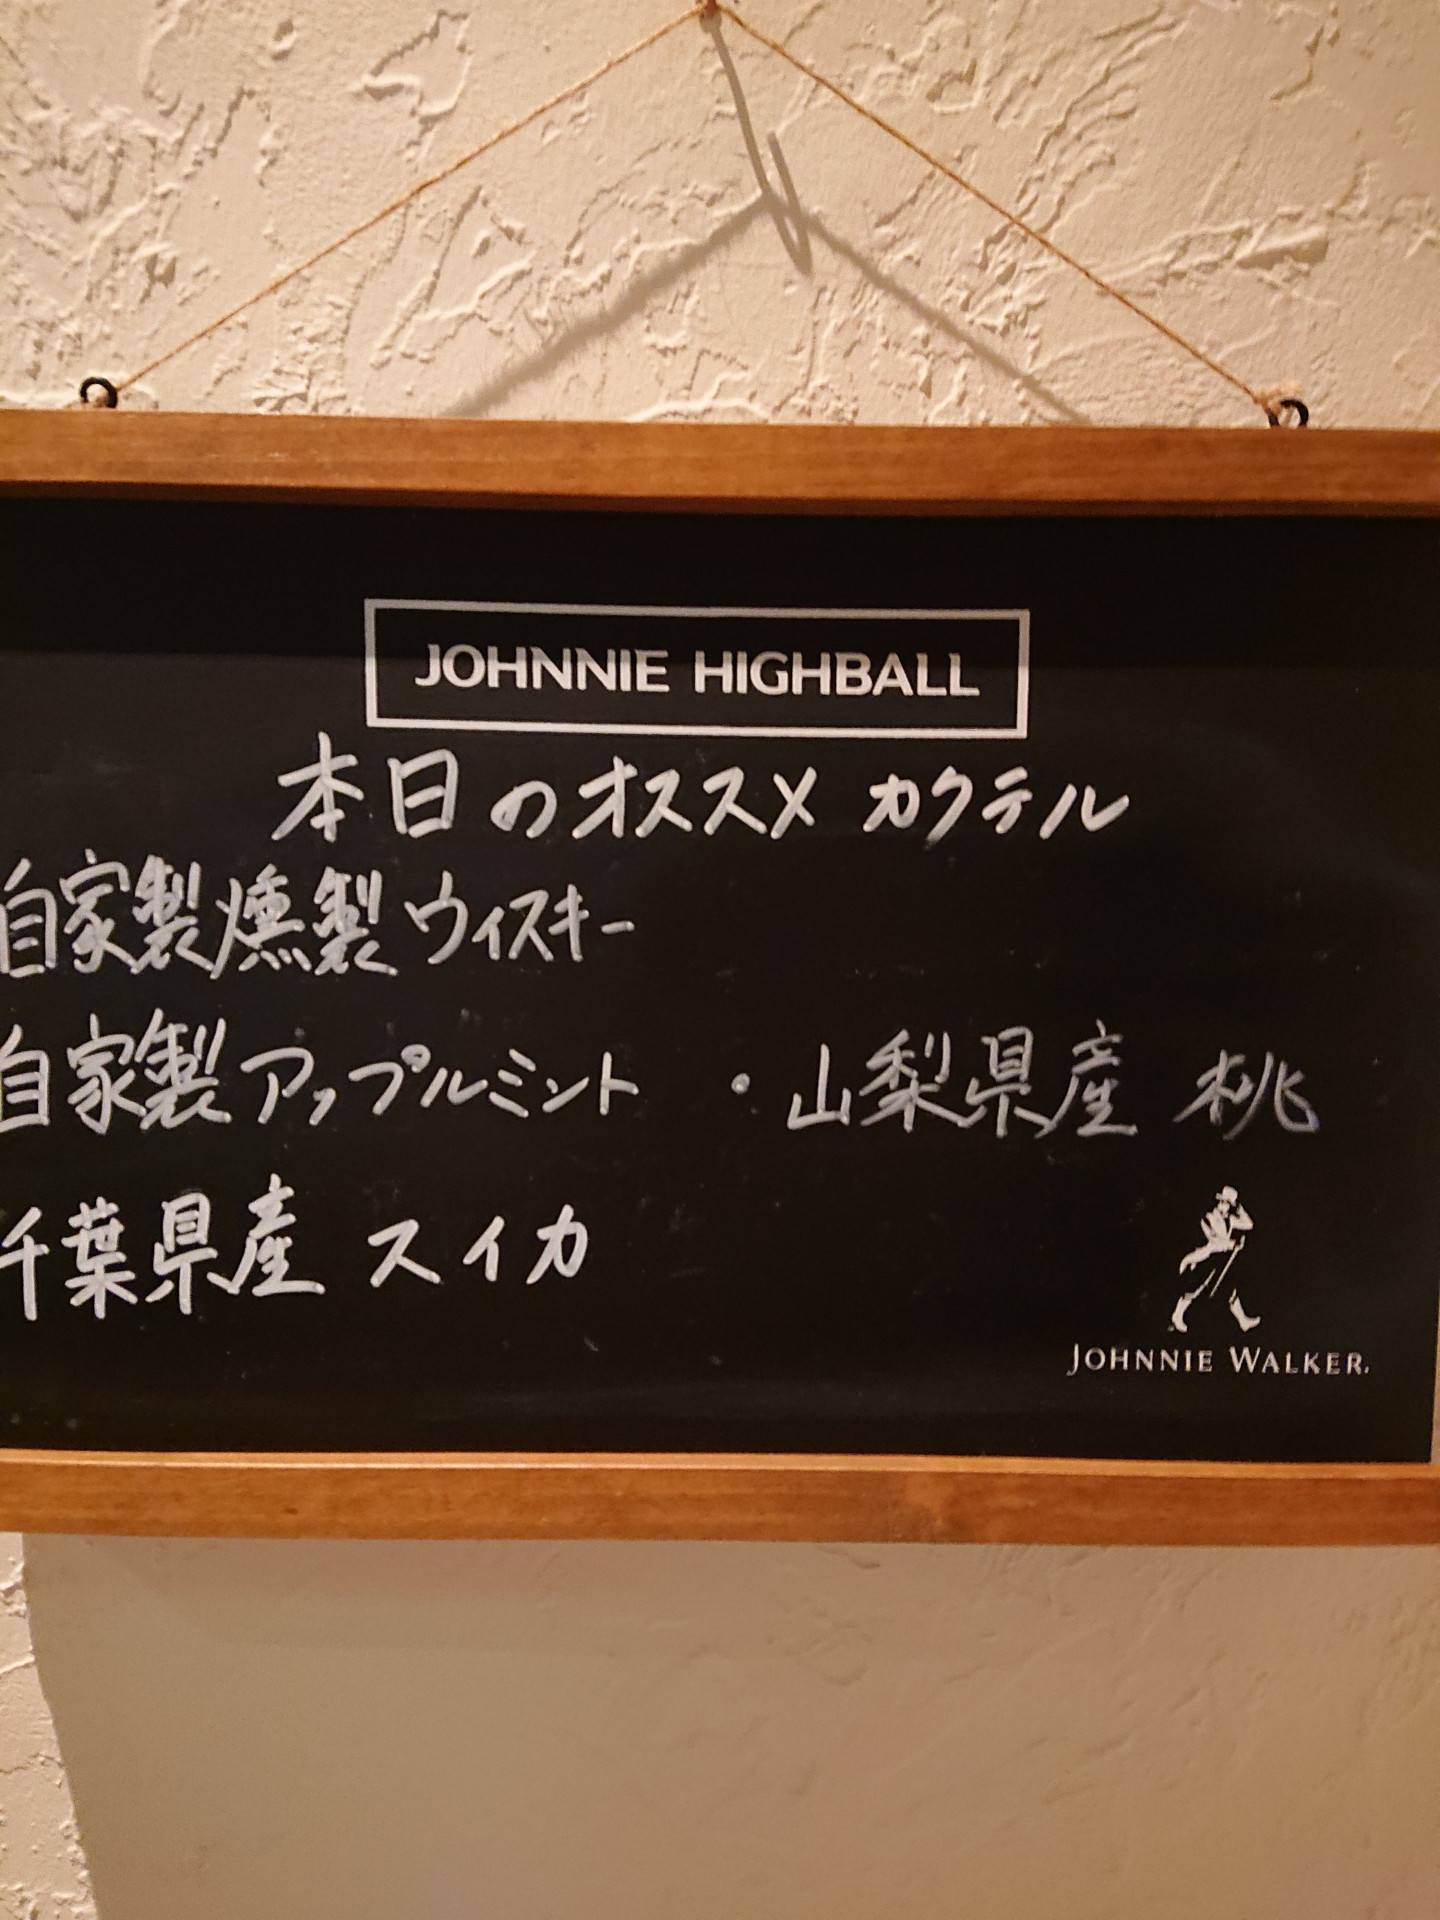 JOHNNIE HIGHBALL
本日のオススメ カクテル
自家製燻製ウィスキー
自家製アップルミント ・山梨県産 桃
千葉県産 スイカ
JOHNNIE WALKER.